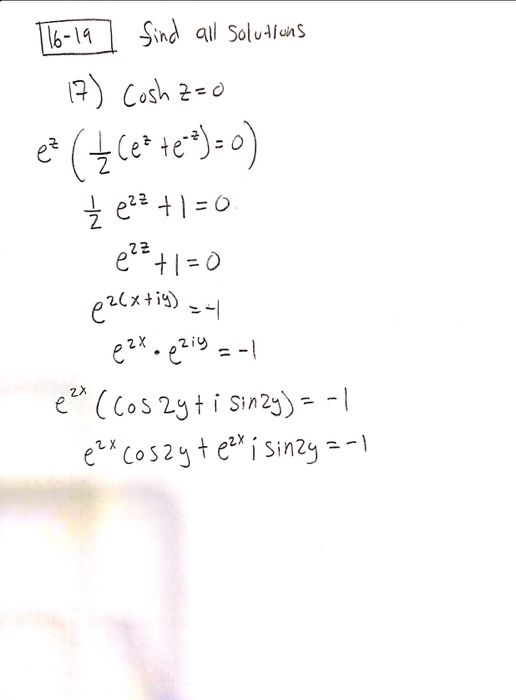 16-19 find all solutions
17) Cosh z = 0
e^z ( 1/2 (e^z + e^-z) = 0 )
1/2 e^2z + 1 = 0
e^2z + 1 = 0
e^2(x+iy) = -1
e^2x · e^2iy = -1
e^2x (cos 2y + i sin2y) = -1
e^2x cos2y + e^2x i sin2y = -1